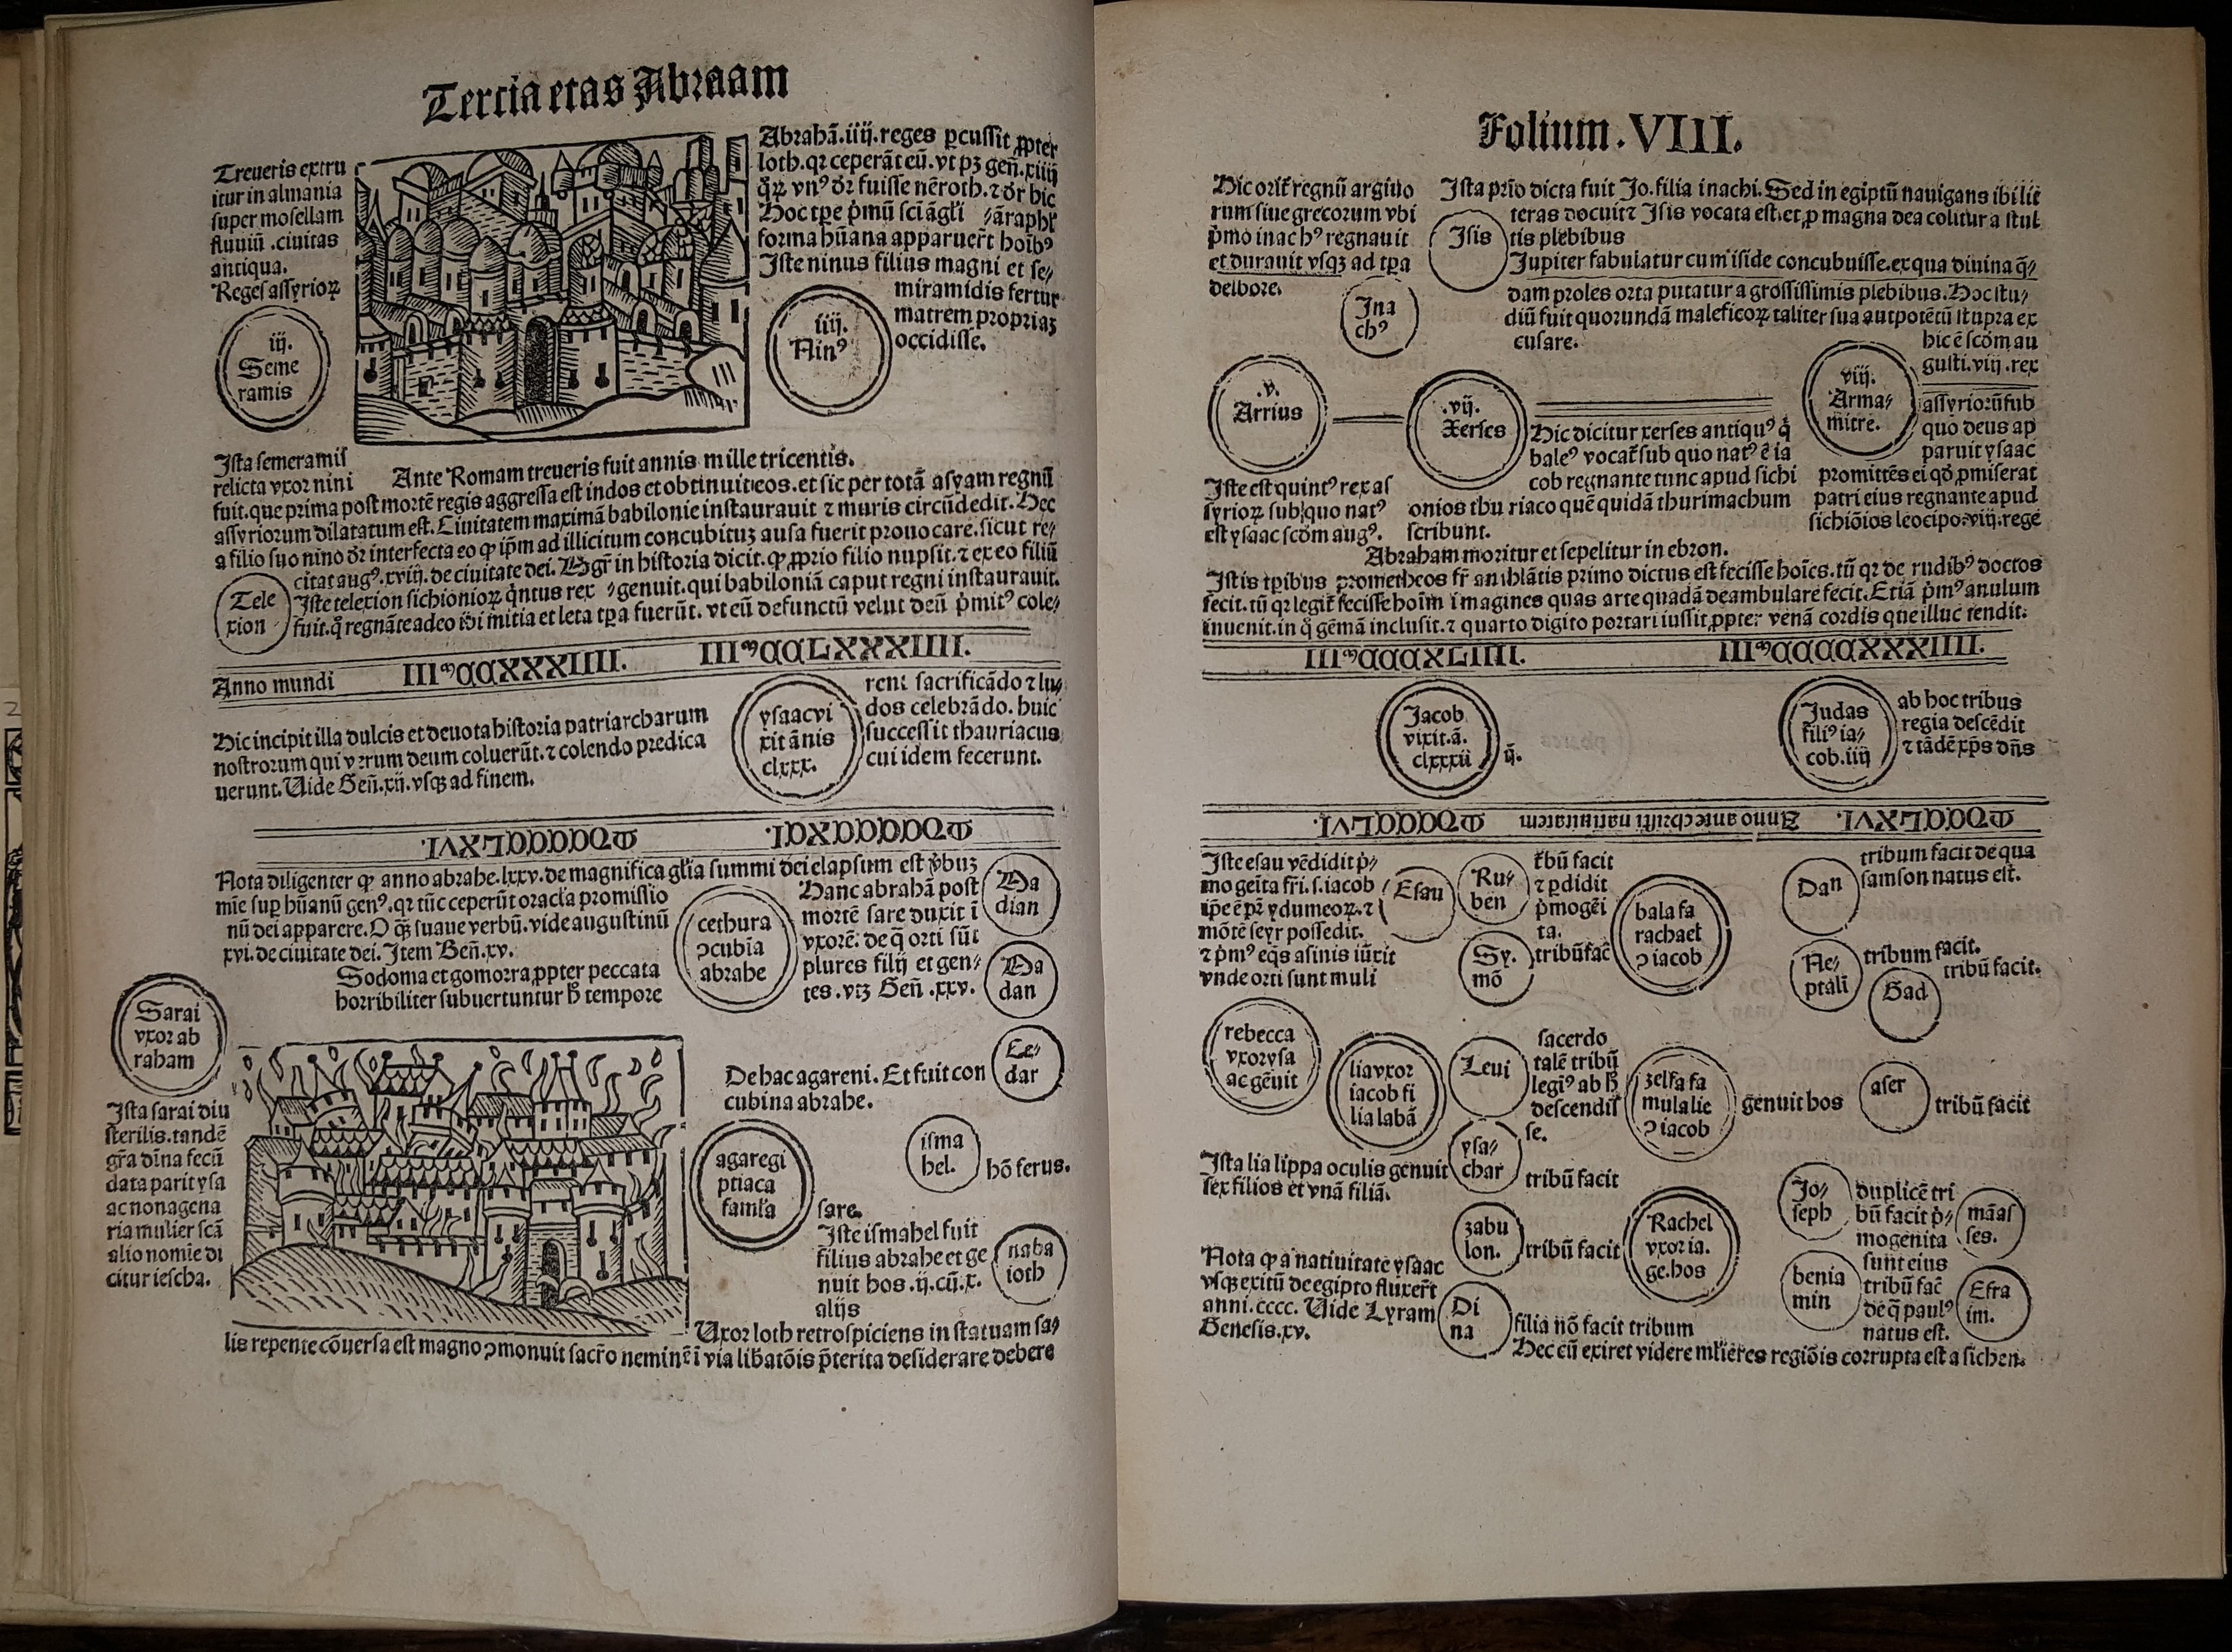 Tercia etas Abraam
Treueris extru
itur in almania
super mosellam
fluuiū .ciuitas
antiqua.
Reges assyrioꝝ
iij.
Seme
ramis
Abrahā.iiij.reges ꝑcussit ꝓpter
loth.qꝛ ceperāt eū.vt pꝫ geñ.xiiij
forma hūana apparuer̄t hoīb⁹
Iste ninus filius magni et se⸗
miramidis fertur
matrem propriaꝫ
occidisse.
iiij.
Nin⁹
Ista semeramis
relicta vxor nini
Ante Romam treueris fuit annis mille tricentis.
fuit.que prima post mortē regis aggressa est indos et obtinuit eos.et sic per totā asyam regnū
assyriorum dilatatum est. Ciuitatem maximā babilonie instaurauit ⁊ muris circūdedit. Hec
a filio suo nino dr̄ interfecta eo ꝙ ip̄m ad illicitum concubituꝫ ausa fuerit prouocare.sicut re⸗
citat aug⁹.xviij.de ciuitate dei. in historia dicit.ꝙ ꝓprio filio nupsit.⁊ ex eo filiū
Iste telexion sichionioꝝ q̇ntus rex ⸗genuit.qui babiloniā caput regni instaurauit.
fuit.q̊ regnāte adeo mitia et leta tꝑa fuerūt. vt eū defunctū velut deū ṗmit⁹ cole⸗
Tele
xion
Anno mundi IIIᵐCCXXXIIII. IIIᵐCCLXXXIIII.
Hic incipit illa dulcis et deuota historia patriarcharum
nostrorum qui verum deum coluerūt.⁊ colendo predica
uerunt.Uide Geñ.xij.vsqꝫ ad finem.
ysaac vi
xit ānis
clxxx.
rent sacrificādo ⁊ lu⸗
dos celebrādo. huic
successit thauriacus
cui idem fecerunt.
MDCCCCLXVI. MDCCCCXVI.
Nota diligenter ꝙ anno abrahe.lxxv.de magnifica gl̄ia summi dei elapsum est
mīe suꝑ hūanū gen⁹.qꝛ tūc ceperūt oracl̄a promissio
nū dei apparere. O suaue verbū.vide augustinū
xvi.de ciuitate dei. Item Geñ.xv.
cethura
ꝯcubīa
abrahe
Hanc abrahā post
mortē sare duxit ī
vxorē. de q̄ orti sūt
plures filij et gen⸗
tes .vtꝫ Geñ .xxv.
Ma
dian
Ma
dan
Sodoma et gomorra ꝓpter peccata
horribiliter subuertuntur tempore
Sarai
vxor ab
raham
Ista sarai diu
sterilis.tandē
gr̄a dīna fecū
data parit ysa
ac nonagena
ria mulier scā
alio nomīe di
citur iescha.
De hac agareni. Et fuit con
cubina abrahe.
Ce⸗
dar
agar egi
ptiaca
faml̄a
isma
hel.
hō ferus.
sare.
Iste ismahel fuit
filius abrahe et ge
nuit hos .ij.cū.x.
alijs
naba
ioth
Uxor loth retrospiciens in statuam sa⸗
lis repente cōuersa est magno ꝯmonuit sacr̄o neminē ī via lib̄atōis p̄terita desiderare debere
Folium.VIII.
Hic orit̄ regnū argiuo
rum siue grecorum vbi
ṗmo inach⁹ regnauit
et durauit vsqꝫ ad tꝑa
delbore.
Ina
ch⁹
Isis
Ista prīo dicta fuit Jo.filia inachi. Sed in egiptū nauigans ibi lit̄
teras docuit⁊ Isis vocata est.et ꝓ magna dea colitur a stul
tis plebibus
Jupiter fabulatur cum iside concubuisse.ex qua diuina q̄⸗
dam proles orta putatur a grossissimis plebibus. Hoc stu⸗
diū fuit quorundā maleficoꝝ taliter sua aut potētū stupra ex
cusare.
.v.
Arrius
.vij.
Xerses
viij.
Arma⸗
mitre.
hic ē scd̄m au
gusti.viij.rex
assyriorū sub
quo deus ap
paruit ysaac
promittēs ei qd̄ ꝓmiserat
patri eius regnante apud
sichiōios leocipo.viij.rege
Hic dicitur xerses antiqu⁹ q̇
bale⁹ vocat̄ sub quo nat⁹ ē ia
cob regnante tunc apud sichi
onios thu riaco quē quidā thurimachum
scribunt.
Iste est quint⁹ rex as
syrioꝝ sub quo nat⁹
est ysaac scd̄m aug⁹.
Abraham moritur et sepelitur in ebron.
Istis tꝑibus prometheos fr̄ athlātis primo dictus est fecisse hoīes.tū qꝛ de rudib⁹ doctos
fecit.tū qꝛ legit̄ fecisse hoīm imagines quas arte quadā deambulare fecit. Etiā ṗm⁹ anulum
inuenit.in q̊ gēmā inclusit.⁊ quarto digito portari iussit ꝓpter venā cordis que illuc tendit.
IIIᵐCCCXLIIII. IIIᵐCCCCXXXIIII.
Jacob
vixit.ā.
clxxxii
Judas
fili⁹ ia⸗
cob.iiij
ab hoc tribus
regia descēdit
⁊ tādē xp̄s dn̄s
MDCCCLVI. Anno ante christi natiuitatem MDCCLXVI.
Iste esau vēdidit ṗ⸗
mogeita fr̄i.s.iacob
ip̄e ē pr̄ ydumeoꝝ.⁊
mōtē seyr possedit.
⁊ ṗm⁹ eq̄s asinis iūxit
vnde orti sunt muli
Esau
Ru⸗
ben
tͥbū facit
⁊ ꝑdidit
ṗmogēi
ta.
Sy.
mō
tribū fac̄
bala fa
rachael
ꝯ iacob
Dan
tribum facit de qua
samson natus est.
Ne⸗
ptali
tribum facit.
Gad
tribū facit.
rebecca
vxor ysa
ac gēnuit
lia vxor
iacob fi
lia labā
Leui
sacerdo
talē tribū
legi⁹ ab
descendis̄
se.
zelfa fa
mula lie
ꝯ iacob
genuit hos
aser
tribū facit
Ista lia lippa oculis genuit
sex filios et vnā filiā.
ysa⸗
char
tribū facit
zabu
lon.
tribū facit
Rachel
vxor ia.
ge.hos
Jo⸗
seph
duplicē tri
bū facit ṗ⸗
mogenita
sunt eius
māas
ses.
benia
min
tribū fac̄
de q̄ paul⁹
natus est.
Efra
im.
Nota ꝙ a natiuitate ysaac
vsqꝫ exitū de egipto fluxer̄t
anni.cccc. Uide Lyram
Genesis.xv.
Di
na
filia nō facit tribum
Hec cū exiret videre ml̄ieres regiōis corrupta est a sichen.